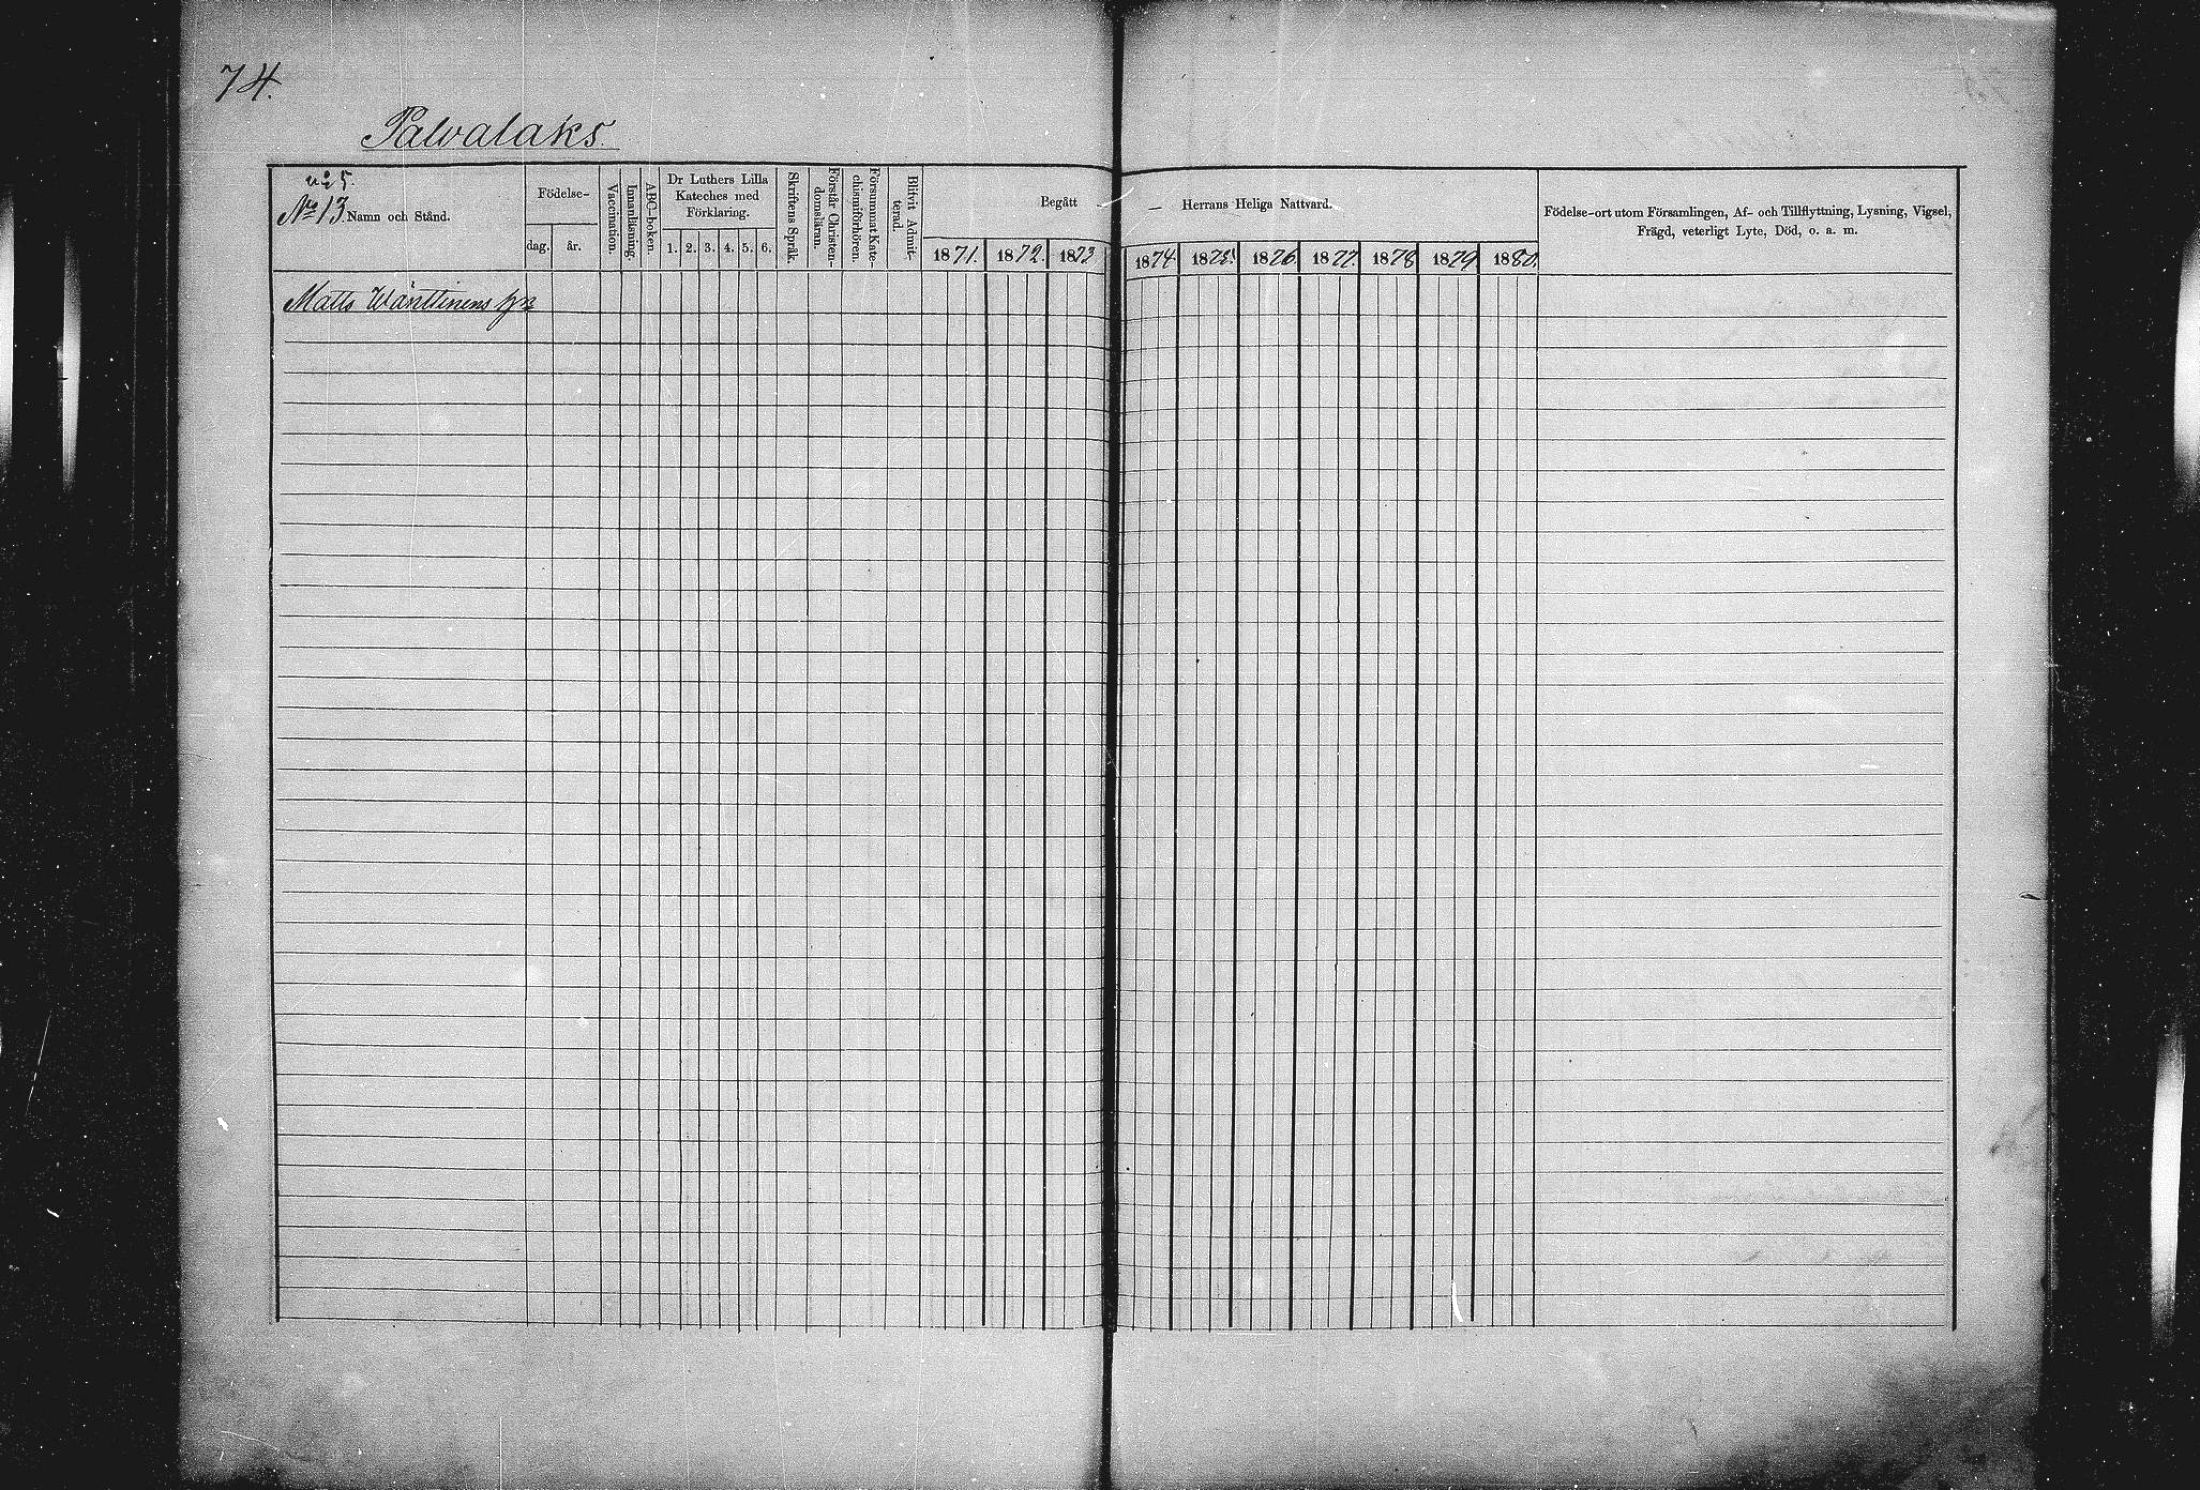 74.
Palvalaks.
№ 5.
№ 13 Namn och Stånd.
Födelse-
dag. år.
Vaccination.
Innanläsning.
ABC-boken.
Dr Luthers Lilla
Kateches med
Förklaring.
1. 2. 3. 4. 5. 6.
Skriftens Språk.
Förstår Christen-
domsläran.
Försummat Kate-
chismiförhören.
Blifvit Admit-
terad.
Begått — Herrans Heliga Nattvard.
1871. 1872. 1873 1874. 1875. 1876 1877. 1878 1879 1880.
Födelse-ort utom Församlingen, Af- och Tillflyttning, Lysning, Vigsel,
Frägd, veterligt Lyte, Död, o. a. m.
Matts Wänttinens